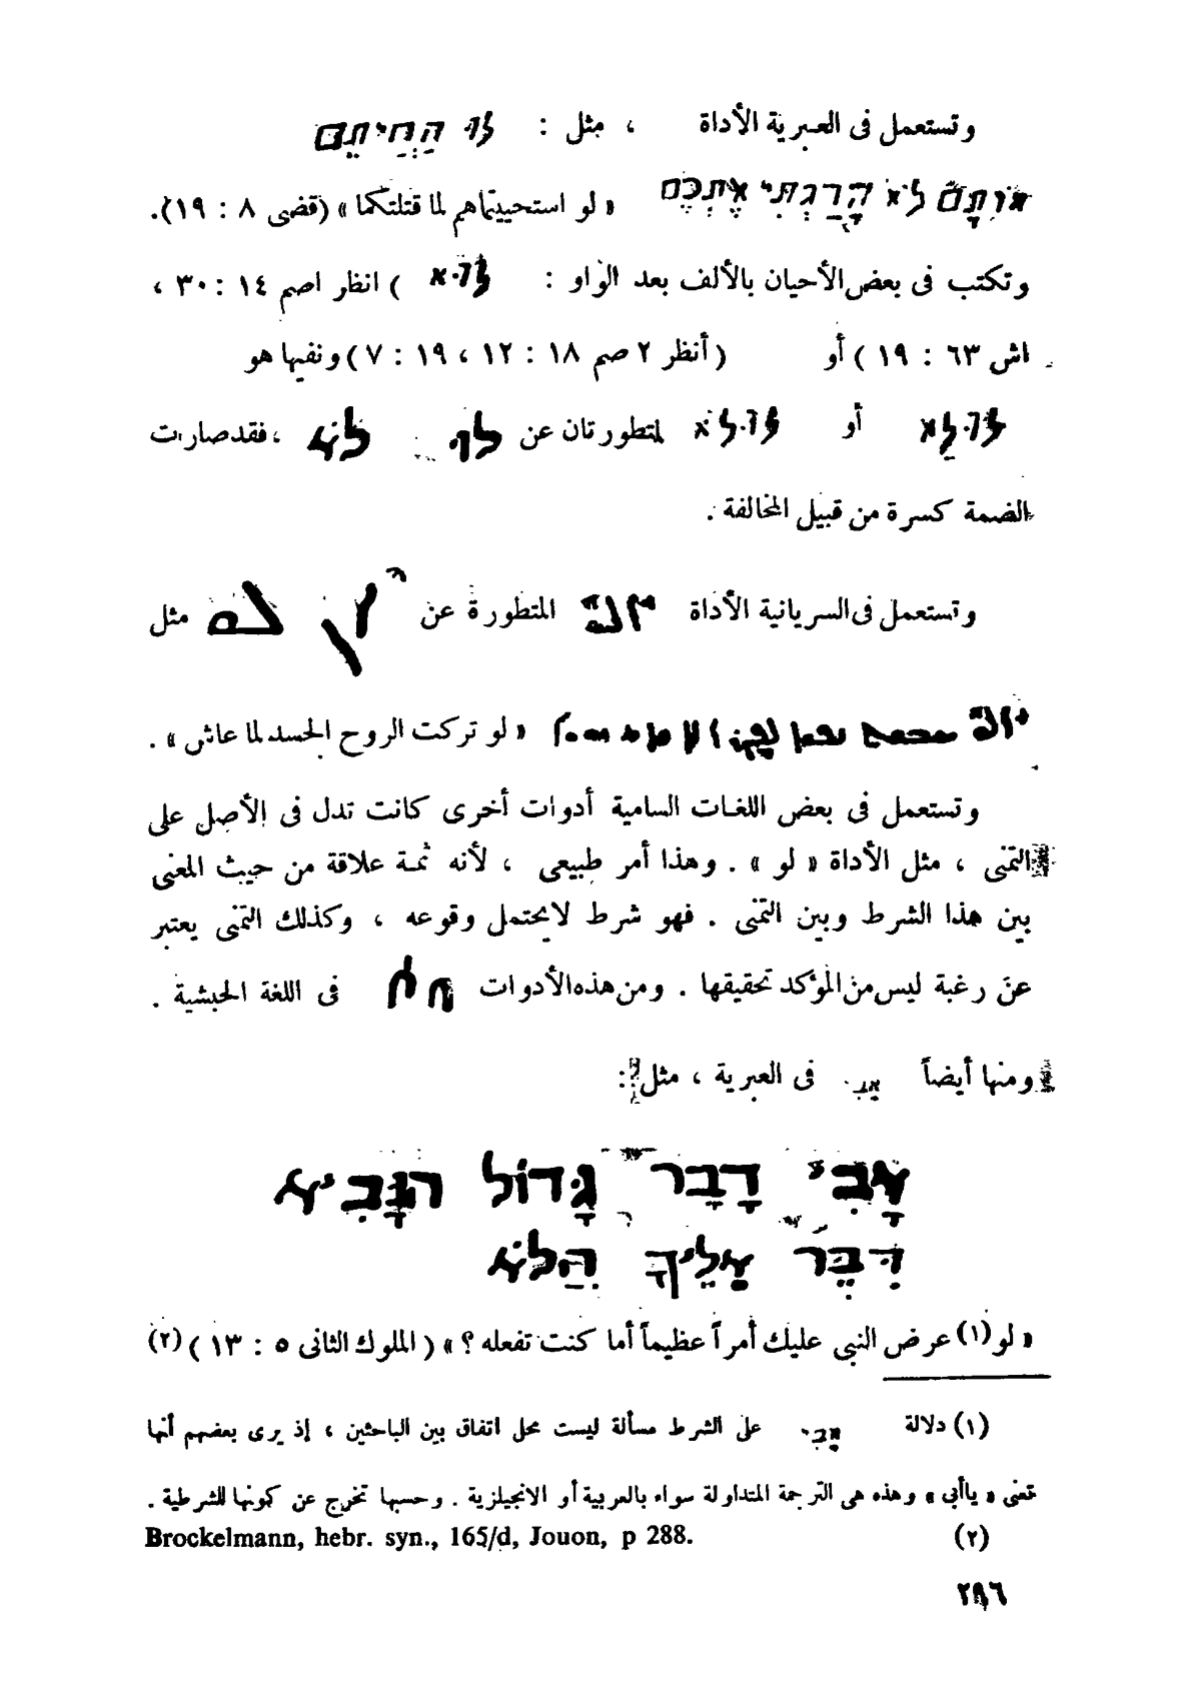 وتستعمل فى العبرية الأداة ، مثل : לוּ הַחֲיִתֶם
אוֹתָם לֹא הָרַגְתִּי אֶתְכֶם « لو استحييتماهم لما قتلتكما » (قضى ٨ : ١٩).
وتكتب فى بعض الأحيان بالألف بعد الواو : לוּא ) انظر اصم ١٤ : ٣٠ ،
اش ٦٣ : ١٩ ) أو ( أنظر ٢ صم ١٨ : ١٢ ، ١٩ : ٧ ) ونفيها هو
أو לוּלֹא لمتطورتان عن לוּ לֹא ، فقد صارت
الضمة كسرة من قبيل المخالفة .
وتستعمل فى السريانية الأداة المتطورة عن مثل
« لو تركت الروح الجسد لما عاش » .
وتستعمل فى بعض اللغات السامية أدوات أخرى كانت تدل فى الأصل على
التمنى ، مثل الأداة « لو » . وهذا أمر طبيعى ، لأنه ثمة علاقة من حيث المعنى
بين هذا الشرط وبين التمنى . فهو شرط لا يحتمل وقوعه ، وكذلك التمنى يعتبر
عن رغبة ليس من المؤكد تحقيقها . ومن هذه الأدوات فى اللغة الحبشية .
ومنها أيضاً فى العبرية ، مثل :
אָבִי דָבָר גָּדוֹל הנָּבִיא
דִּבֶּר אֵלֶיךָ הֲלֹא
« لو (١) عرض النبى عليك أمراً عظيماً أما كنت تفعله ؟ » ( الملوك الثانى ٥ : ١٣ ) (٢)
(١) دلالة אָבִי على الشرط مسألة ليست محل اتفاق بين الباحثين ، إذ يرى بعضهم أنها
تعنى « ياأبى » وهذه هى الترجمة المتداولة سواء بالعربية أو الانجيلزية . وحسبها تخرج عن كونها للشرطية .
(٢) Brockelmann, hebr. syn., 165/d, Jouon, p 288.
٢٩٦